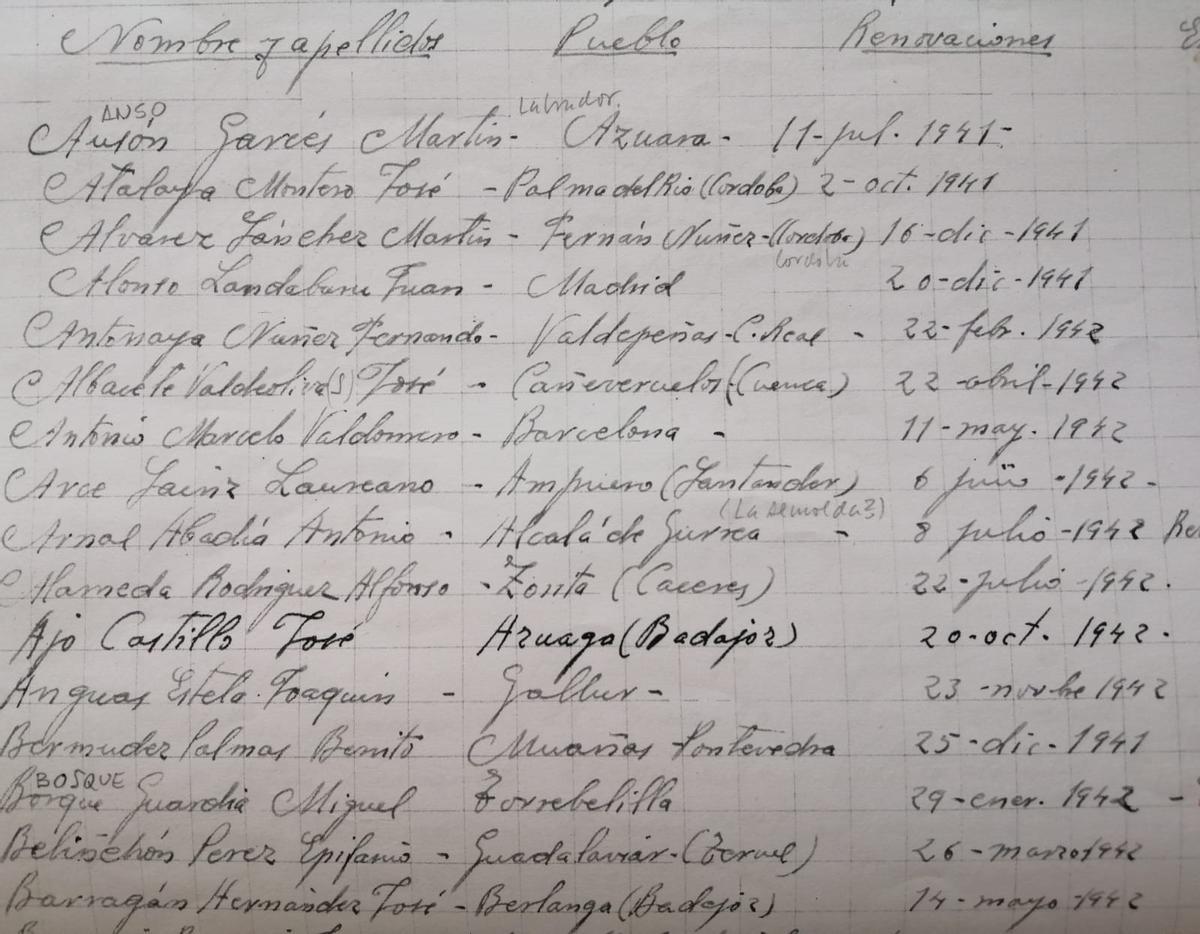 Nombre y apellidos Pueblo Renovaciones
ANSO Labrador.
Ausón Garcés Martín - Azuara - 11-jul. 1941-
Atalaya Montero José - Palma del Rio (Cordoba) 2-oct. 1941
Alvarez Sánchez Martín - Fernán Nuñez-(Cordoba) 16-dic-1941
Cordoba
Alonso Landaburu Juan - Madrid 20-dic-1941
Antonaya Nuñez Fernando - Valdepeñas-C. Real - 22-febr. 1942
Albacete Valdeoliva(s) José - Cañeveruelos (Cuenca) 22-abril-1942
Antonio Marcelo Valdomero - Barcelona - 11-may. 1942
Arce Sainz Laureano - Ampuero (Santander) 6 -1942-
(La Almolda?)
Arnal Abadía Antonio - Alcalá de Gurrea - 8 julio-1942
Alameda Rodriguez Alfonso - Zorita (Caceres) 22-julio-1942.
Ajo Castillo José Azuaga (Badajoz) 20-oct. 1942.
Anguas Estela Joaquin - Gallur - 23-novbe 1942
Bermudez Palmas Benito Pontevedra 25-dic-1941
BOSQUE
Borque Guardia Miguel Torrebelilla 29-ener. 1942 -
Belinchón Perez Epifanio - Guadalaviar-(Teruel) 26-marzo 1942
Barragán Hernández José - Berlanga (Badajoz) 14-mayo-1942